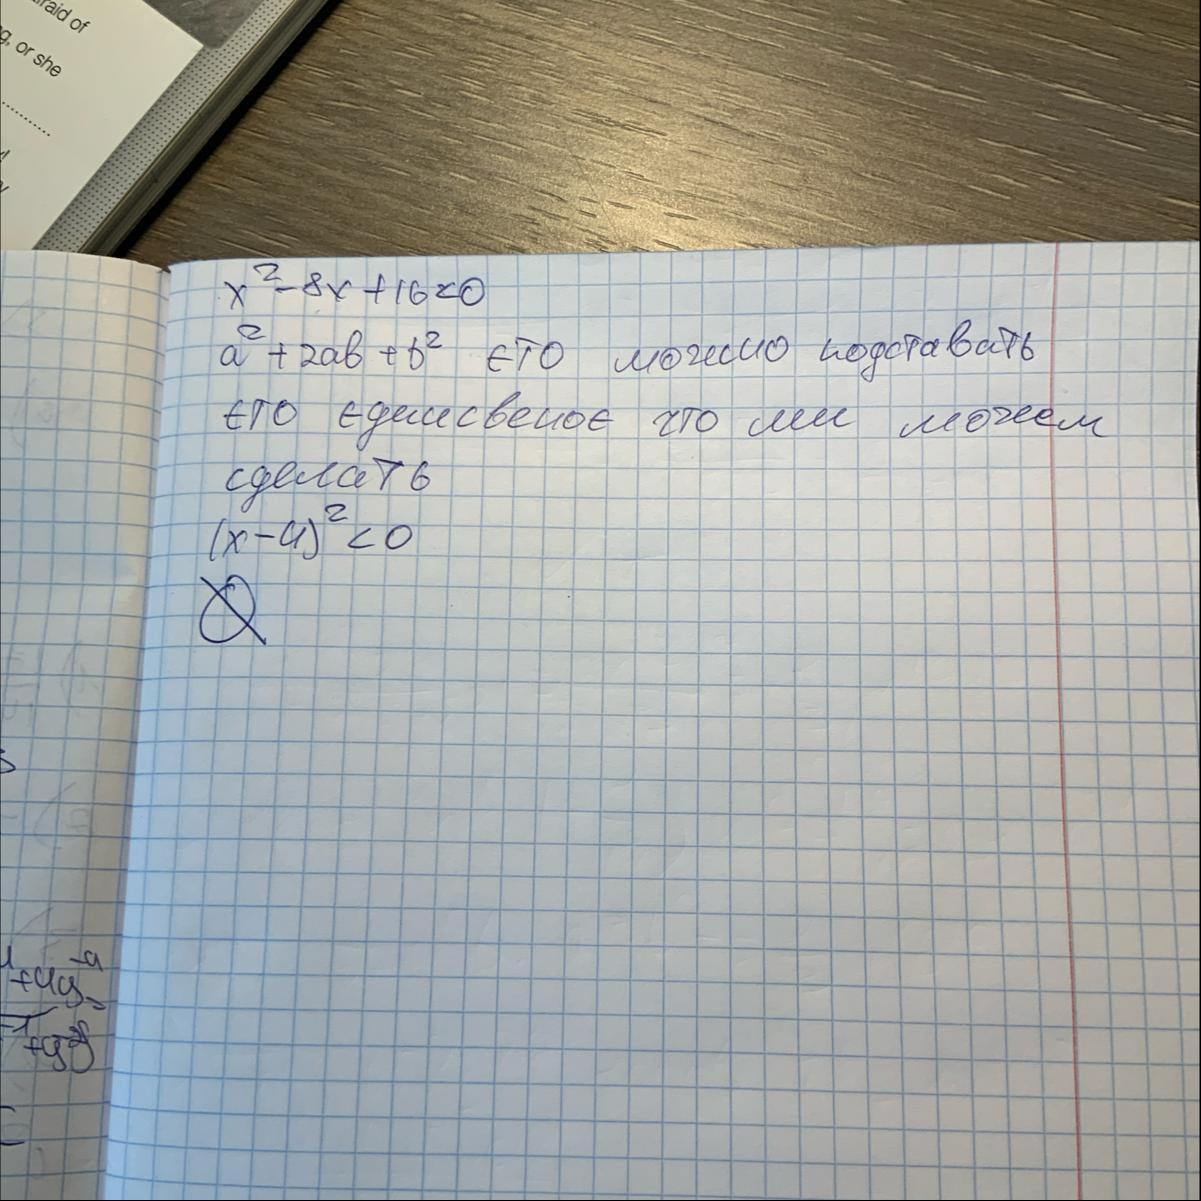 raid of
g, or she
x² - 8x + 16 < 0
a² + 2ab + b² єто можно подставать
єто єдинсвеноє что ми можем
сделать
(x - 4)² < 0
∅
+4y
+y²